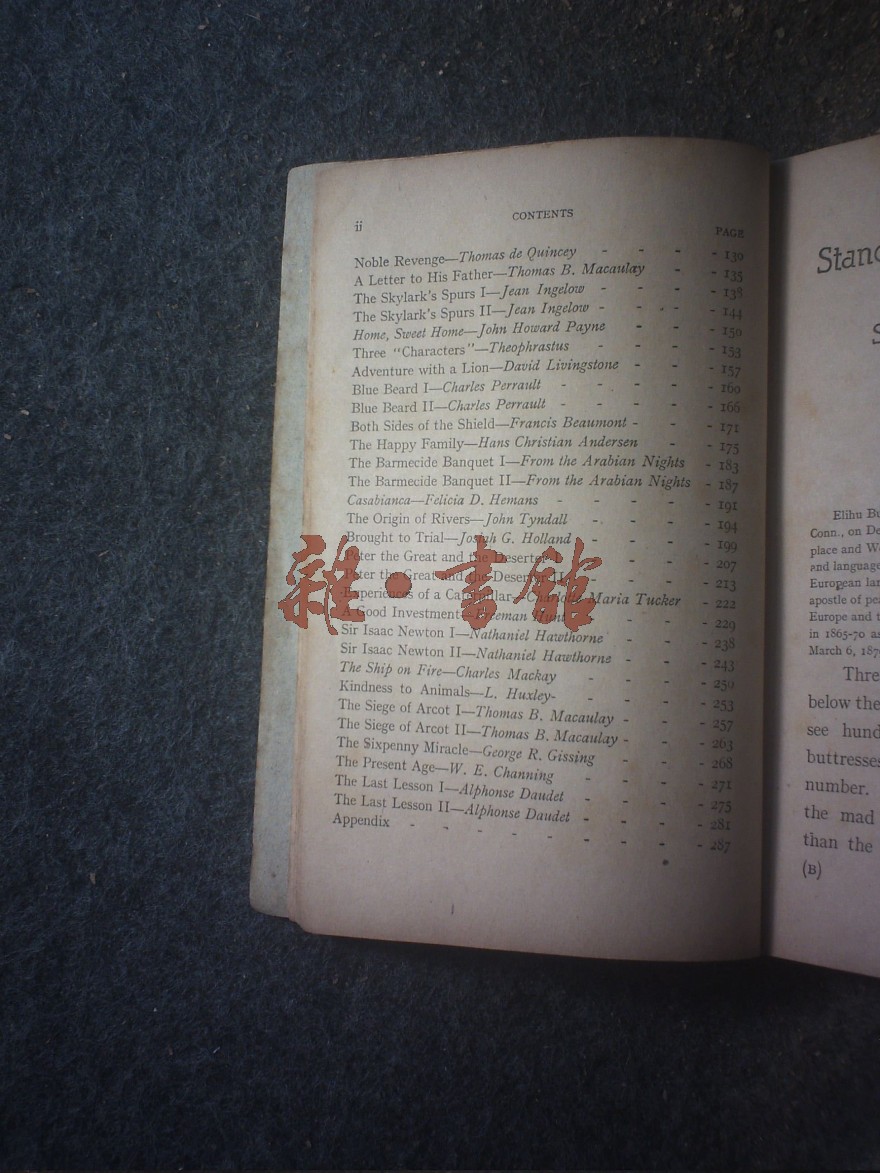 ii
CONTENTS
PAGE
Noble Revenge—Thomas de Quincey - - - - 130
A Letter to His Father—Thomas B. Macaulay - - 135
The Skylark's Spurs I—Jean Ingelow - - - - 138
The Skylark's Spurs II—Jean Ingelow - - - - 144
Home, Sweet Home—John Howard Payne - - - 150
Three "Characters"—Theophrastus - - - - 153
Adventure with a Lion—David Livingstone - - - 157
Blue Beard I—Charles Perrault - - - - - 160
Blue Beard II—Charles Perrault - - - - - 166
Both Sides of the Shield—Francis Beaumont - - - 171
The Happy Family—Hans Christian Andersen - - 175
The Barmecide Banquet I—From the Arabian Nights - 183
The Barmecide Banquet II—From the Arabian Nights - 187
Casabianca—Felicia D. Hemans - - - - - 191
The Origin of Rivers—John Tyndall - - - - 194
Brought to Trial—Josiah G. Holland - - - - 199
Peter the Great and the Deserter I - - - - 207
Peter the Great and the Deserter II - - - - 213
Experiences of a Caterpillar—Charlotte Maria Tucker - 222
A Good Investment—Freeman Hunt - - - - 229
Sir Isaac Newton I—Nathaniel Hawthorne - - - 238
Sir Isaac Newton II—Nathaniel Hawthorne - - - 243
The Ship on Fire—Charles Mackay - - - - 250
Kindness to Animals—L. Huxley- - - - - 253
The Siege of Arcot I—Thomas B. Macaulay - - - 257
The Siege of Arcot II—Thomas B. Macaulay - - - 263
The Sixpenny Miracle—George R. Gissing - - - 268
The Present Age—W. E. Channing - - - - 271
The Last Lesson I—Alphonse Daudet - - - - 275
The Last Lesson II—Alphonse Daudet - - - - 281
Appendix - - - - - - - - 287
雜·書館
Stand
S
Elihu Bu
Conn., on De
place and Wo
and language
European lan
apostle of pea
Europe and t
in 1865-70 as
March 6, 187
Thre
below the
see hund
buttresses
number.
the mad
than the
(B)